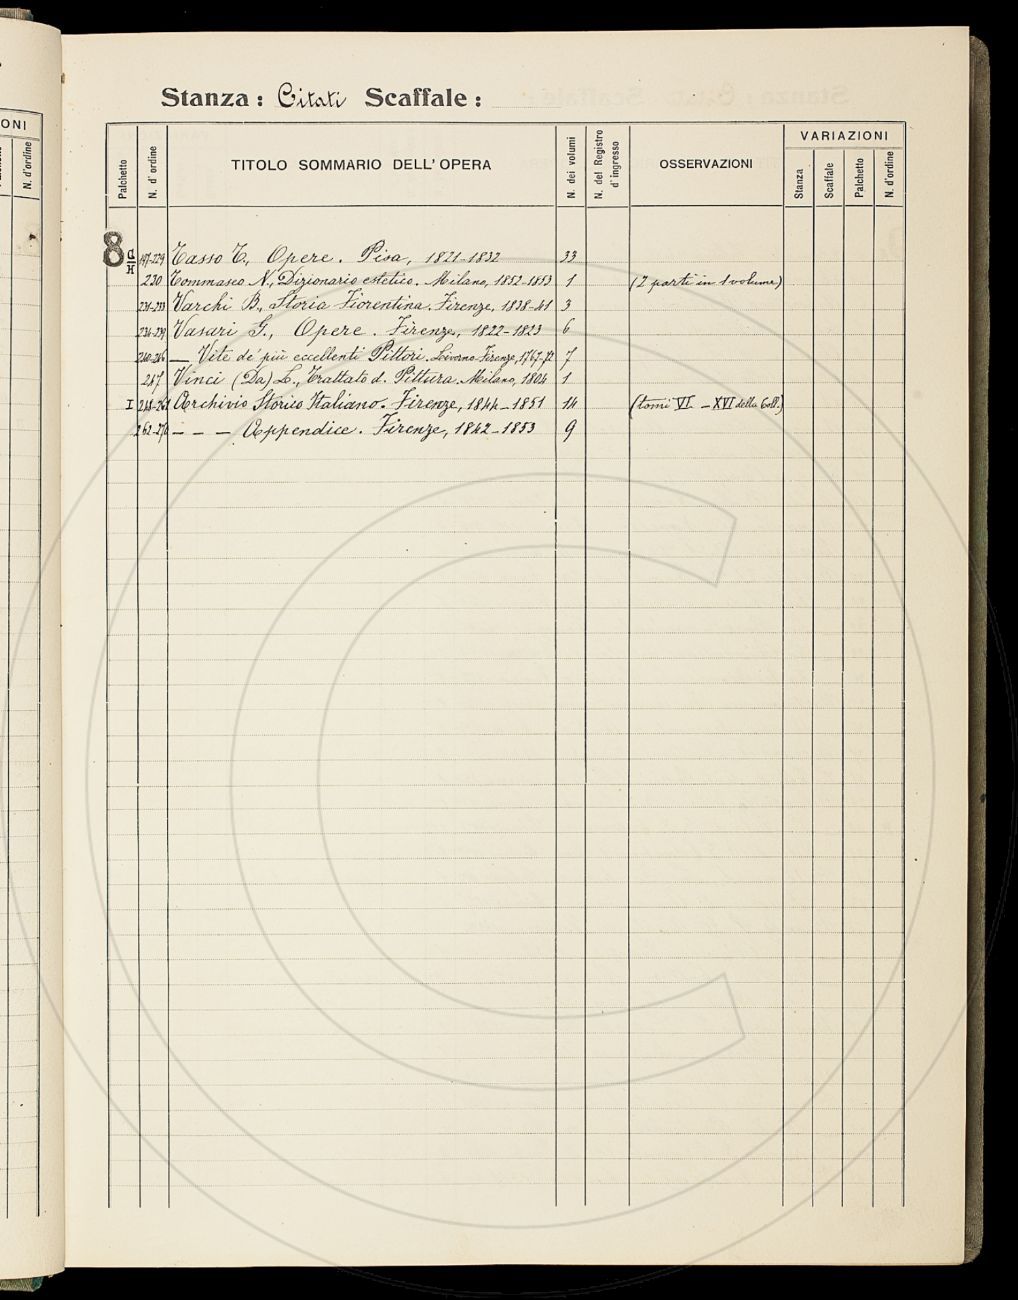 ONI
N. d'ordine
Stanza: Citati Scaffale:
Palchetto N. d'ordine TITOLO SOMMARIO DELL'OPERA N. dei volumi N. del Registro d'ingresso OSSERVAZIONI VARIAZIONI
Stanza Scaffale Palchetto N. d'ordine
8 G/H 197-229 Tasso T., Opere. Pisa, 1821-1832 33
230 Tommaseo N., Dizionario estetico. Milano, 1852-1853 1 (2 parti in 1 volume)
231-233 Varchi B., Storia Fiorentina. Firenze, 1838-41 3
234-239 Vasari G., Opere. Firenze, 1822-1823 6
240-246 — Vite de' più eccellenti Pittori. Livorno-Firenze, 1767-72 7
247 Vinci (Da) L., Trattato d. Pittura. Milano, 1804 1
I 248-261 Archivio Storico Italiano. Firenze, 1844-1851 14 (tomi VI - XVI della Coll.)
262-270 — — — Appendice. Firenze, 1842-1853 9